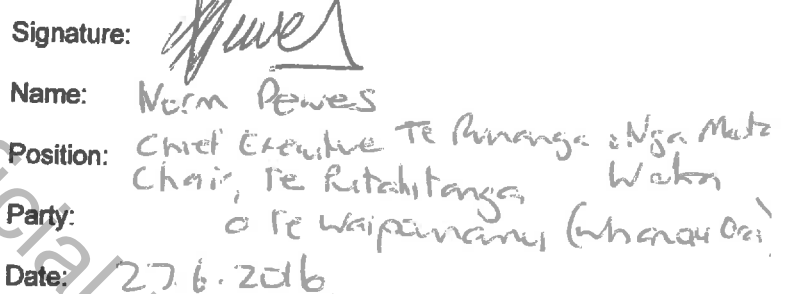 Signature:
Name: Norm Dewes
Position: Chief Executive Te Runanga o Nga Mata Waka
Chair, Te Putahitanga
Party: o Te Waipounamu (Whanau Ora)
Date: 27.6.2016